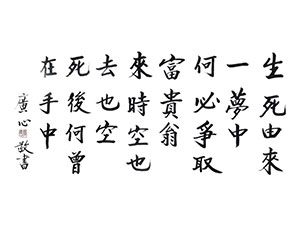 生死由來
一夢中
何必爭取
富貴翁
來時空也
去也空
死後何曾
在手中
廣心敬書